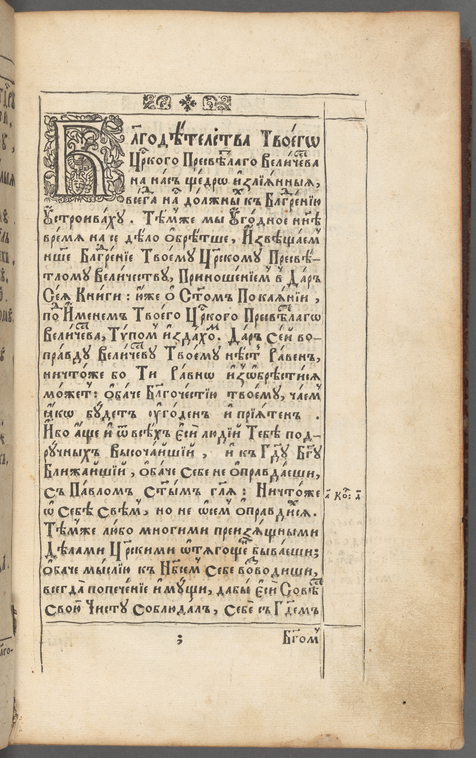 Благодѣтелства Твоегѡ
Црⷭ҇кого Пресвѣтлаго Величества
на насъ щедрѡ и҆злїѧнныѧ,
всегда насъ должны къ Благ҃дренїю
ᲂу҆строиваху . Тѣмже мы ᲂу҆годное нн҃ѣ
времѧ на се дѣло ѡ҆брѣтше , И҆звѣщаемъ
нше Блгⷣренїе Твоему Црⷭ҇кому Пресвѣ-
тлому Величеству, Приношенїемъ в Даръ
Сеѧ Книги : ꙗже ѡ҆ Ст҃омъ Покаѧнїи ,
под И҆менемъ Твоегѡ Црⷭ҇кого Пресвѣтлагѡ
Величества, Тѵпомъ и҆здахомъ. Даръ Сей во-
правду Величеству Твоему нѣсть Равенъ,
ничтоже бо Ти Равнѡ и҆з̾ѡбрѣстисѧ
можетъ : ѻ҆баче Блг҃очестїю твоему, чаемъ
ꙗкѡ будетъ ᲂу҆годенъ и҆ прїѧтенъ .
И҆бо аще и҆ ѿ всѣхъ Е҆си людїй Тебѣ под-
ручныхъ Высочайшїй , и къ Гдⷭ҇у Бг҃у
Ближайшїй , ѻ҆баче Себе не ѡ҆правдаеши,
съ Павломъ Ст҃ымъ гл҃ѧ : Ничтоже
ѡ҆ Себѣ Свѣмъ, но не ѡ҆ семъ ѡ҆правдихсѧ.
а҃ Коⷬ: д҃
Тѣмже любо многими преизѧщными
Дѣлами Црⷭ҇кими ѿѧгощенъ бываеши;
ѻ҆баче мыслїю къ Нбⷭ҇емъ Себе возводиши,
всегда попеченїе и҆мущи, дабы Е҆си Совѣсть
Свою Чисту Соблюдалъ, Себе съ Гдⷭ҇емъ
;
Бг҃омъ